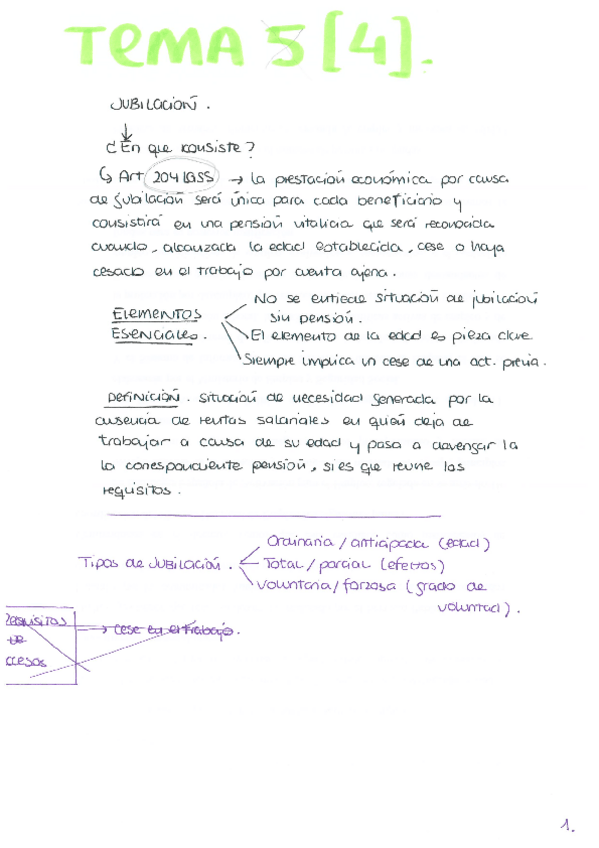 TEMA 5 [4].
JUBILACIÓN.
¿En que consiste?
Art 204 LGSS → La prestación económica por causa
de jubilación será única para cada beneficiario y
consistirá en una pensión vitalicia que será reconocida
cuando, alcanzada la edad establecida, cese o haya
cesado en el trabajo por cuenta ajena.
ELEMENTOS
ESENCIALES.
No se entiede situación de jubilación
sin pensión.
El elemento de la edad es pieza clave
Siempre implica un cese de una act. previa.
DEFINICIÓN. situación de necesidad generada por la
ausencia de rentas salariales en quién deja de
trabajar a causa de su edad y pasa a devengar la
la correspondiente pensión, si es que reune los
requisitos.
Tipos de JUBILACIÓN.
Ordinaria / anticipada (edad)
Total / parcial (efectos)
Voluntaria / forzosa (grado de
voluntad).
Requisitos → cese en el trabajo.
de
ccesos
1.